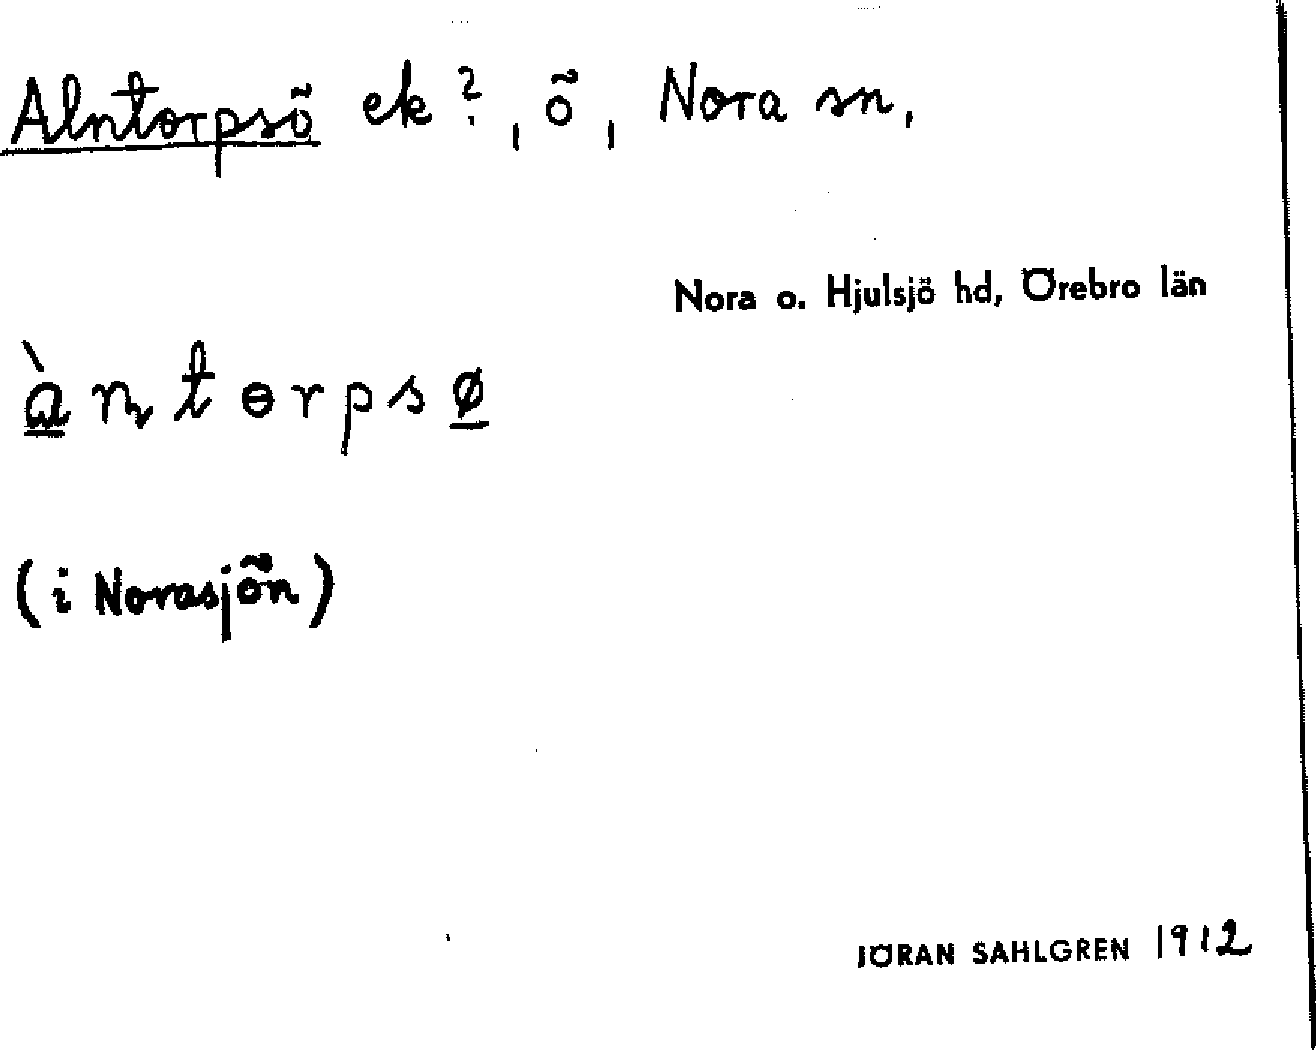 Alntorpsö ek?, ö, Nora sn,
Nora o. Hjulsjö hd, Örebro län
àntɵrpsø
(i Norasjön)
JÖRAN SAHLGREN 1912